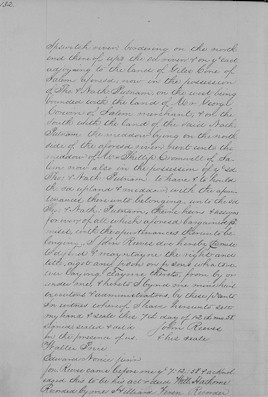 132.
Ipswitch river bordering on the north
end thereof upō the sd river & on ye East
adjoyning to the land of Giles Corie of
Salem aforesd, now in the possession
of Tho & Nath Putnam on the west being
bounded with the land of Mr George
Corwin of Salem merchant, & on the
south with the land of the said Nath
Putnam the meadow lying on the north
side of the aforesd river, next unto the
meddow of Mr Phillip Cromwell of Sa-
lem now also in the possession of ye sd
Tho & Nath Putnam to have & to hould
the sd upland & meddow with the apur-
tenances thereunto belonging, unto the sd
Tho & Nath Putnam, theire heires & assigns
for ever, of all which aforesd bargained pre-
mises with the apurtenances thereunto be-
longing I John Rives doe hereby Covent
to defend & maynteyne the right and
title, agst any person or persons whatsoe-
ver laying clayme thereto, from by or
under me & hereto I bynd me mine heirs
executors & administrators by these psents
In witness whereof I have hereunto sett
my hand & seale this
signed sealed & dd in John Rives
in the presence of us & his seale
Walter Price
Edward Norice junior
Jon Rives came before me & acknowl-
edged this to be his act & deed Will Hathorne
Recorded by me Hilliard Veren Recorder